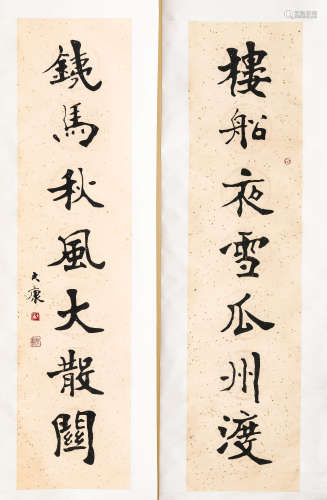 樓船夜雪瓜州渡
鐵馬秋風大散關
大康